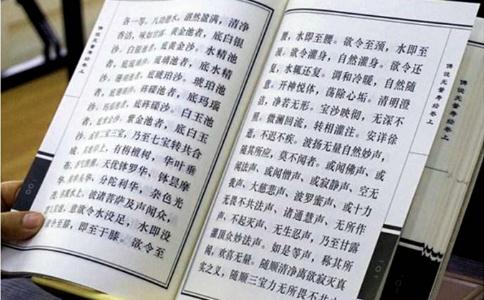 各一等。八功德水,湛然盈满,清净
香洁,味如甘露。黄金池者,底白银
沙。白银池者,底黄金沙。水精池
者,底琉璃沙。琉璃池者,底水精
沙。珊瑚池者,底琥珀沙。琥珀池
者,底珊瑚沙。砗磲池者,底玛瑙
沙。玛瑙池者,底砗磲沙。白玉池
者,底紫金沙。紫金池者,底白玉
沙。或二宝三宝,乃至七宝转共合
成。其池岸上,有栴檀树,华叶垂
布,香气普熏。天优钵罗华、钵昙摩
华、拘物头华、分陀利华,杂色光
茂,弥覆水上。彼诸菩萨及声闻众,
若入宝池,意欲令水没足,水即没
足。欲令至膝,即至于膝。欲令至
腰,水即至腰。欲令至颈,水即至
颈。欲令灌身,自然灌身。欲令还
复,水辄还复。调和冷暖,自然随
意。开神悦体,荡除心垢。清明澄
洁,净若无形。宝沙映彻,无深不
照。微澜回流,转相灌注。安详徐
逝,不迟不疾。波扬无量自然妙声,
随其所应,莫不闻者。或闻佛声,或
闻法声,或闻僧声,或寂静声,空无
我声,大慈悲声,波罗蜜声,或十力
无畏不共法声,诸通慧声,无所作
声,不起灭声,无生忍声,乃至甘露
灌顶众妙法声。如是等声,称其所
闻,欢喜无量。随顺清净离欲寂灭真
实之义,随顺三宝力无所畏不共